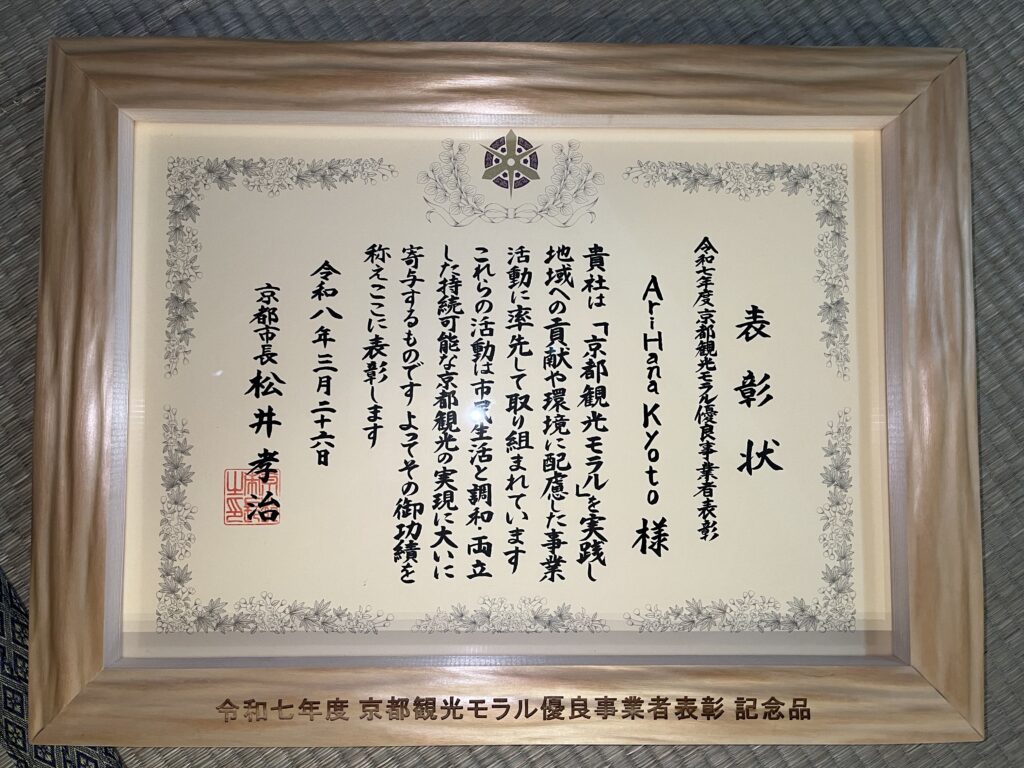 表彰状
令和七年度京都観光モラル優良事業者表彰
AriHana Kyoto 様
貴社は「京都観光モラル」を実践し
地域への貢献や環境に配慮した事業
活動に率先して取り組まれています
これらの活動は市民生活と調和・両立
した持続可能な京都観光の実現に大いに
寄与するものです よってその御功績を
称えここに表彰します
令和八年三月二十六日
京都市長 松井孝治
令和七年度 京都観光モラル優良事業者表彰 記念品